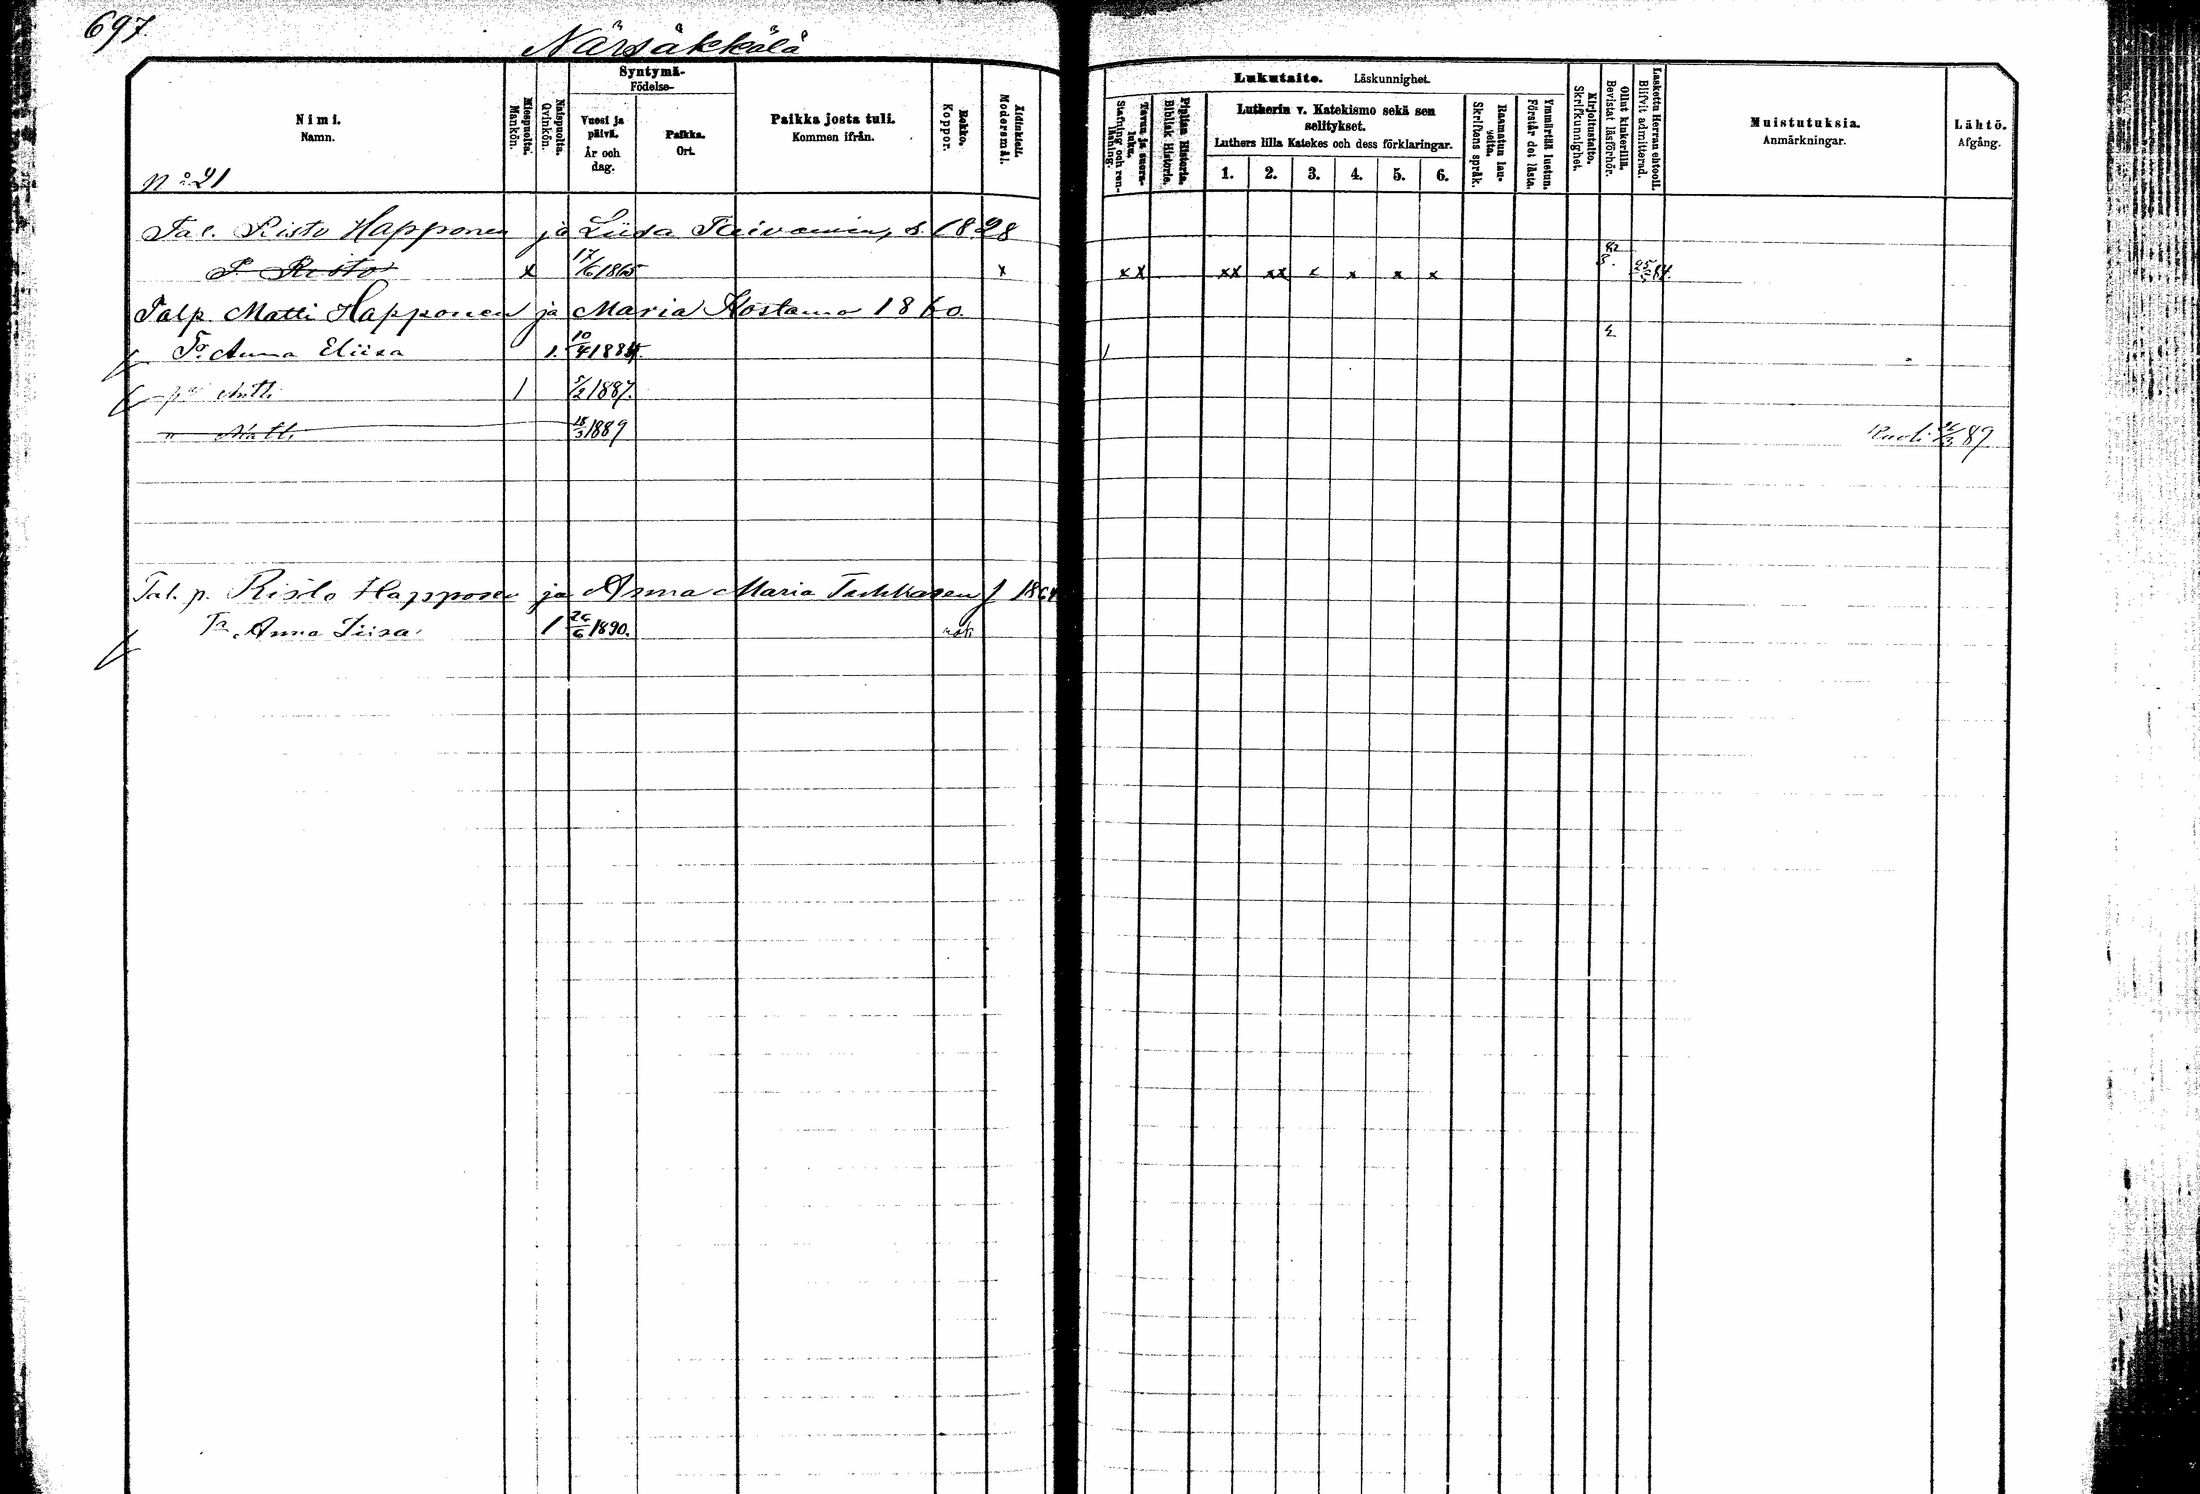 697
Närsäkkälä
Nimi.
Namn.
Miespuolia.
Mankön.
Naispuolia.
Qvinkön.
Syntymä-
Födelse-
Vuosi ja
päivä.
År och
dag.
Paikka.
Ort.
Paikka josta tuli.
Kommen ifrån.
Rokko.
Koppor.
Äidinkieli.
Modersmål.
Lukutaito. Läskunnighet.
Tavuu ja suora-
luku.
Stafning och ren-
läsning.
Piplian Historia.
Biblisk Historie.
Lutherin v. Katekismo sekä sen
selitykset.
Luthers lilla Katekes och dess förklaringar.
1. 2. 3. 4. 5. 6.
Raamatun lau-
seita.
Skriftens språk.
Ymmärtää luetun.
Förstår det lästa.
Kirjoitustaito.
Skrifkunnighet.
Ollut kinkerillä.
Bevistat läsförhör.
Laskettu Herran ehtooll.
Blifvit admitterad.
Muistutuksia.
Anmärkningar.
Lähtö.
Afgång.
No 21
Tal. Risto Happonen ja Liisa s. 1828
P. Risto x 17/6 1865 x xx xx xx x x x x 82 84.
Talp. Matti Happonen ja Maria Kostamo 1860
Tr Anna Eliisa 1. 10/4 1884 1
Antti 1 5/2 1887.
" Matti 18/3 1889 Kuoli 26/3 89
Tal. p. Risto Happosen ja Anna Maria Turkkasen f 1864
Tr Anna Liisa 1 26/6 1890. rok